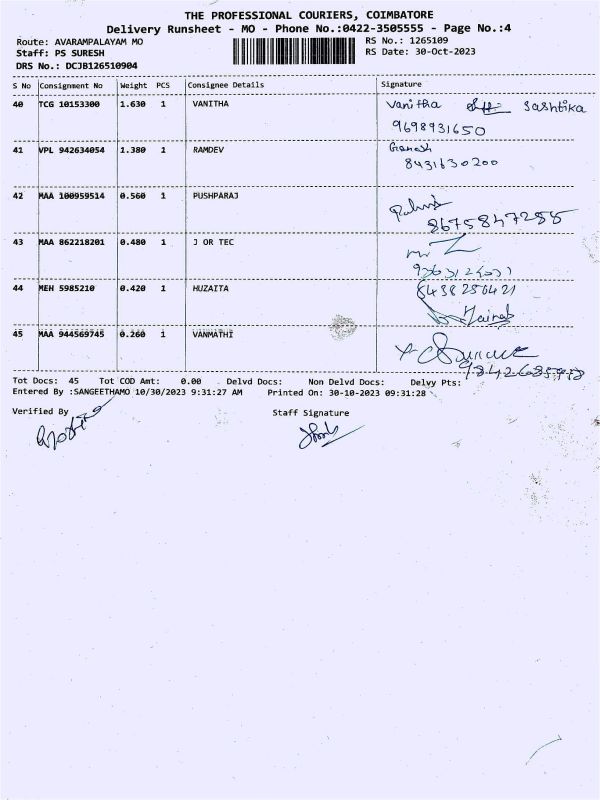 THE PROFESSIONAL COURIERS, COIMBATORE
Delivery Runsheet - MO - Phone No.:0422-3505555 - Page No.:4
Route: AVARAMPALAYAM MO RS No.: 1265109
Staff: PS SURESH RS Date: 30-Oct-2023
DRS No.: DCJB126510904
S No Consignment No Weight PCS Consignee Details Signature
40 TCG 10153300 1.630 1 VANITHA Vanitha Sashtika
9698931650
41 VPL 942634054 1.380 1 RAMDEV Ganesh
8431630200
42 MAA 100959514 0.560 1 PUSHPARAJ
8675847255
43 MAA 862218201 0.480 1 J OR TEC
44 MEH 5985210 0.420 1 HUZAITA 8438256421
45 MAA 944569745 0.260 1 VANMATHI
Tot Docs: 45 Tot COD Amt: 0.00 Delvd Docs: Non Delvd Docs: Delvy Pts:
Entered By :SANGEETHAMO 10/30/2023 9:31:27 AM Printed On: 30-10-2023 09:31:28
Verified By Staff Signature